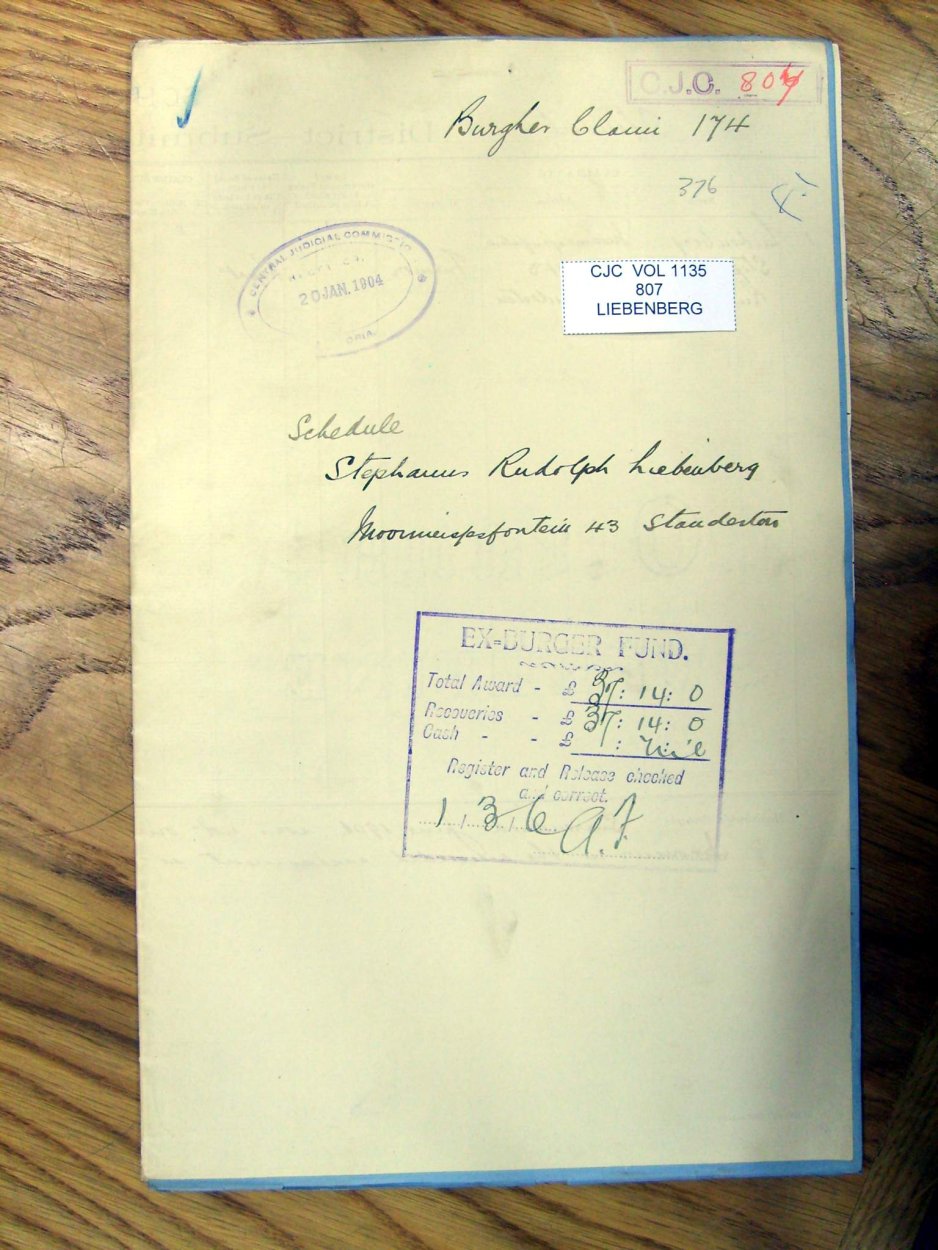 C.J.C. 807
Burgher Claim 174
376
CENTRAL JUDICIAL COMMISSIO
20 JAN. 1904
ORIA.
CJC VOL 1135
807
LIEBENBERG
Schedule
Stephanus Rudolph Liebenberg
43 Standerton
EX-BURGER FUND.
Total Award - £ 37: 14: 0
Recoveries - £ 37: 14: 0
Cash - - £ : Nil
Register and Release checked
and correct.
1/3/6